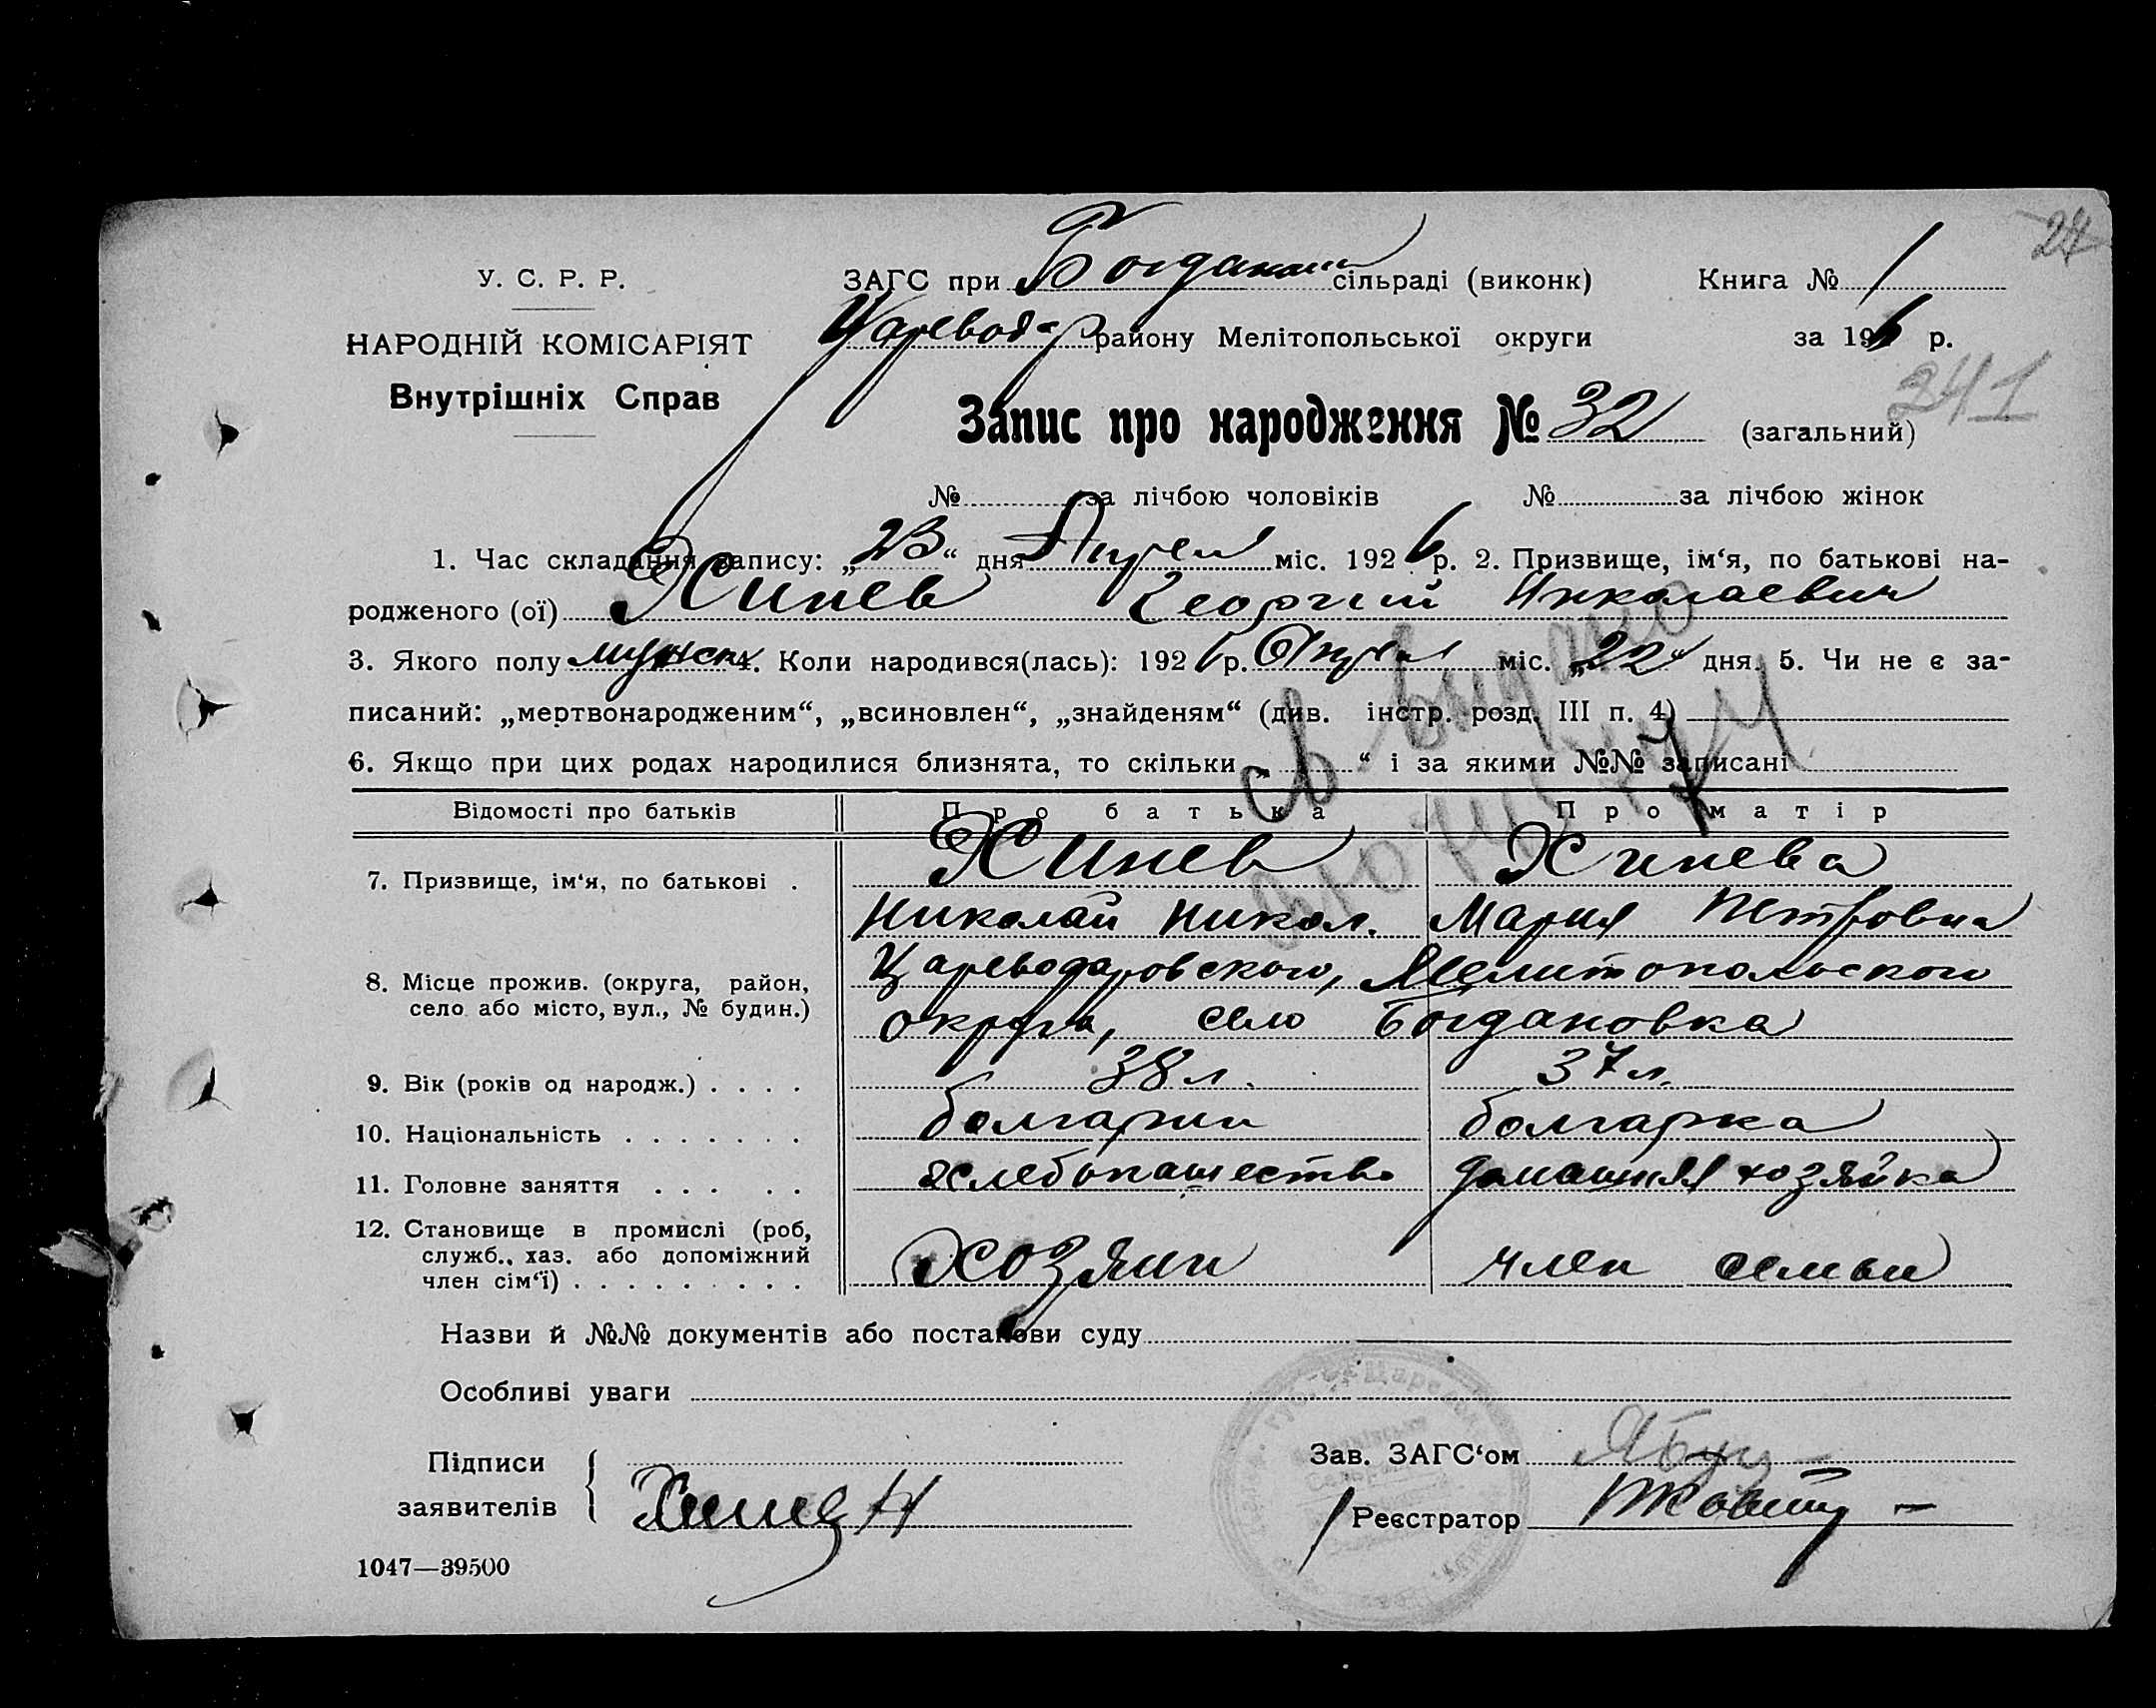 27
У. С. Р. Р.
ЗАГС при Богданов сільраді (виконк)
Книга № 1
Царевод-р району Мелітопольської округи
за 1926 р.
НАРОДНІЙ КОМІСАРІЯТ
Внутрішніх Справ
341
Запис про народження № 32 (загальний)
№ за лічбою чоловіків № за лічбою жінок
1. Час складання запису: „23“ дня Апреля міс. 1926 р. 2. Призвище, ім‘я, по батькові на-
родженого (ої) Хинев Георгий Николаевич
3. Якого полу мужск. 4. Коли народився(лась): 1926 р. Апреля міс. „22“ дня. 5. Чи не є за-
писаний: „мертвонародженим“, „всиновлен“, „знайденям“ (див. інстр. розд. III п. 4)
6. Якщо при цих родах народилися близнята, то скільки „ “ і за якими №№ записані
Св выдано
Відомості про батьків Про батька Про матір
7. Призвище, ім‘я, по батькові . Хинев Хинева
Николай Никол. Мария Петровна
8. Місце прожив. (округа, район, село або місто, вул., № будин.) Цареводаровского, Мелитопольского
округа, село Богдановка
9. Вік (років од народж.) . . . . 38 л. 37 л.
10. Національність . . . . . . . болгарин болгарка
11. Головне заняття . . . . . хлебопашество домашняя хозяйка
12. Становище в промислі (роб,
служб., хаз. або допоміжний
член сім‘ї) . . . . . . . . . Хозяин член семьи
Назви й №№ документів або постанови суду
Особливі уваги
Підписи
заявителів Хинев Н
Зав. ЗАГС‘ом
Реєстратор
1047—39500